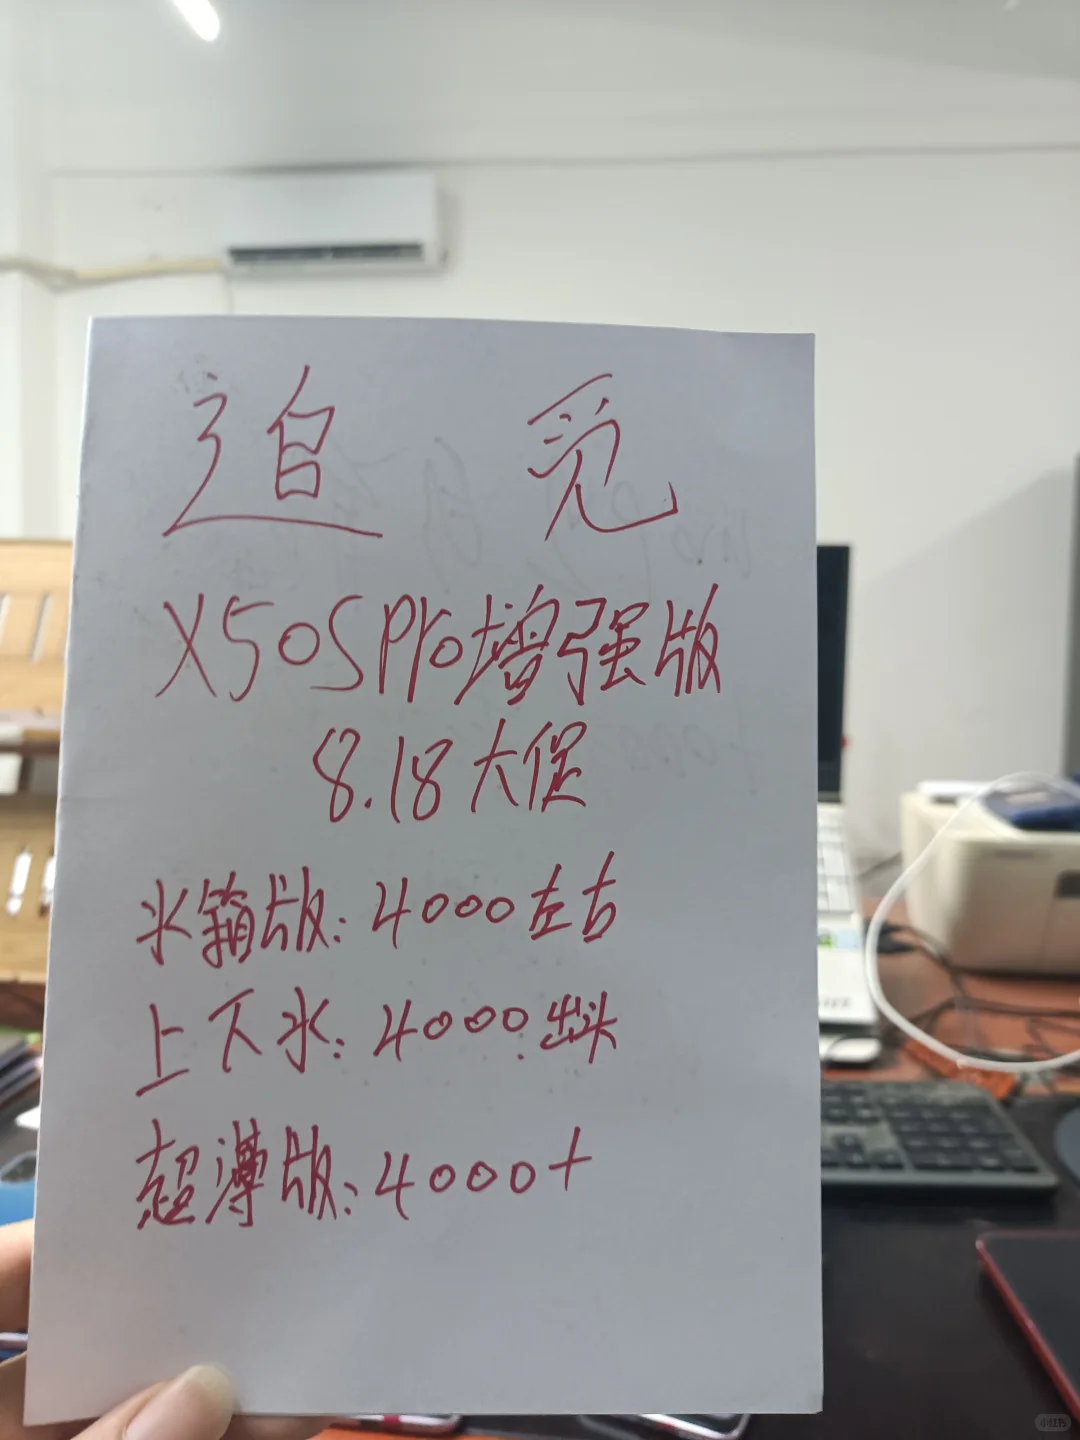 追觅
X50S Pro增强版
8.18大促
水箱版:4000左右
上下水:4000出头
超薄版:4000+
小红书